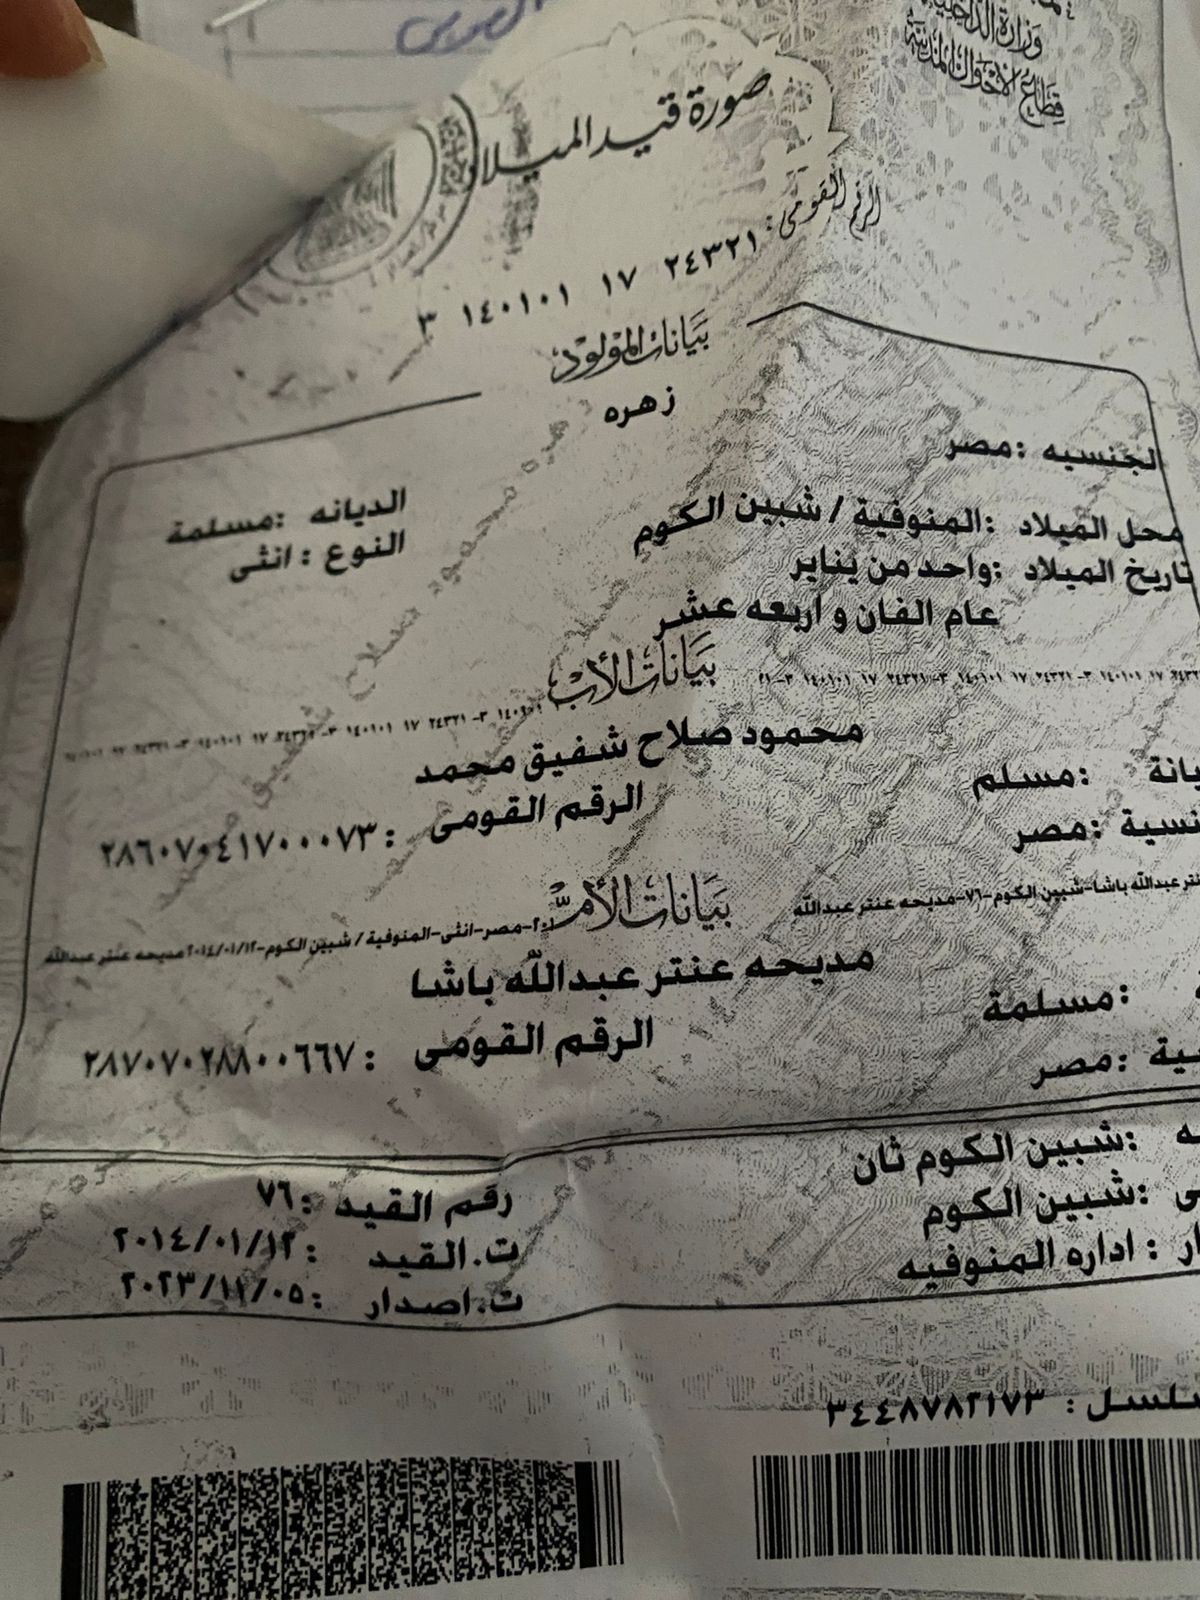 وزارة الداخلية
قطاع الأحوال المدنية
صورة قيد الميلاد
الرقم القومى :
٣ ١٤٠١٠١ ١٧ ٢٤٣٢١
بيانات المولود
زهره
الجنسيه : مصر
الديانه : مسلمة
محل الميلاد : المنوفية / شبين الكوم
النوع : انثى
تاريخ الميلاد : واحد من يناير
عام الفان و اربعه عشر
بيانات الأب
محمود صلاح شفيق محمد
: مسلم
الرقم القومى : ٢٨٦٠٧٠٤١٧٠٠٠٧٣
: مصر
بيانات الأم
مديحه عنتر عبدالله باشا
: مسلمة
الرقم القومى : ٢٨٧٠٧٠٢٨٨٠٠٦٦٧
: مصر
: شبين الكوم ثان
رقم القيد : ٧٦
: شبين الكوم
ت.القيد : ٢٠١٤/٠١/١٢
: اداره المنوفيه
ت.اصدار : ٢٠٢٣/١١/٠٥
مسلسل : ٣٤٤٨٧٨٢١٧٣